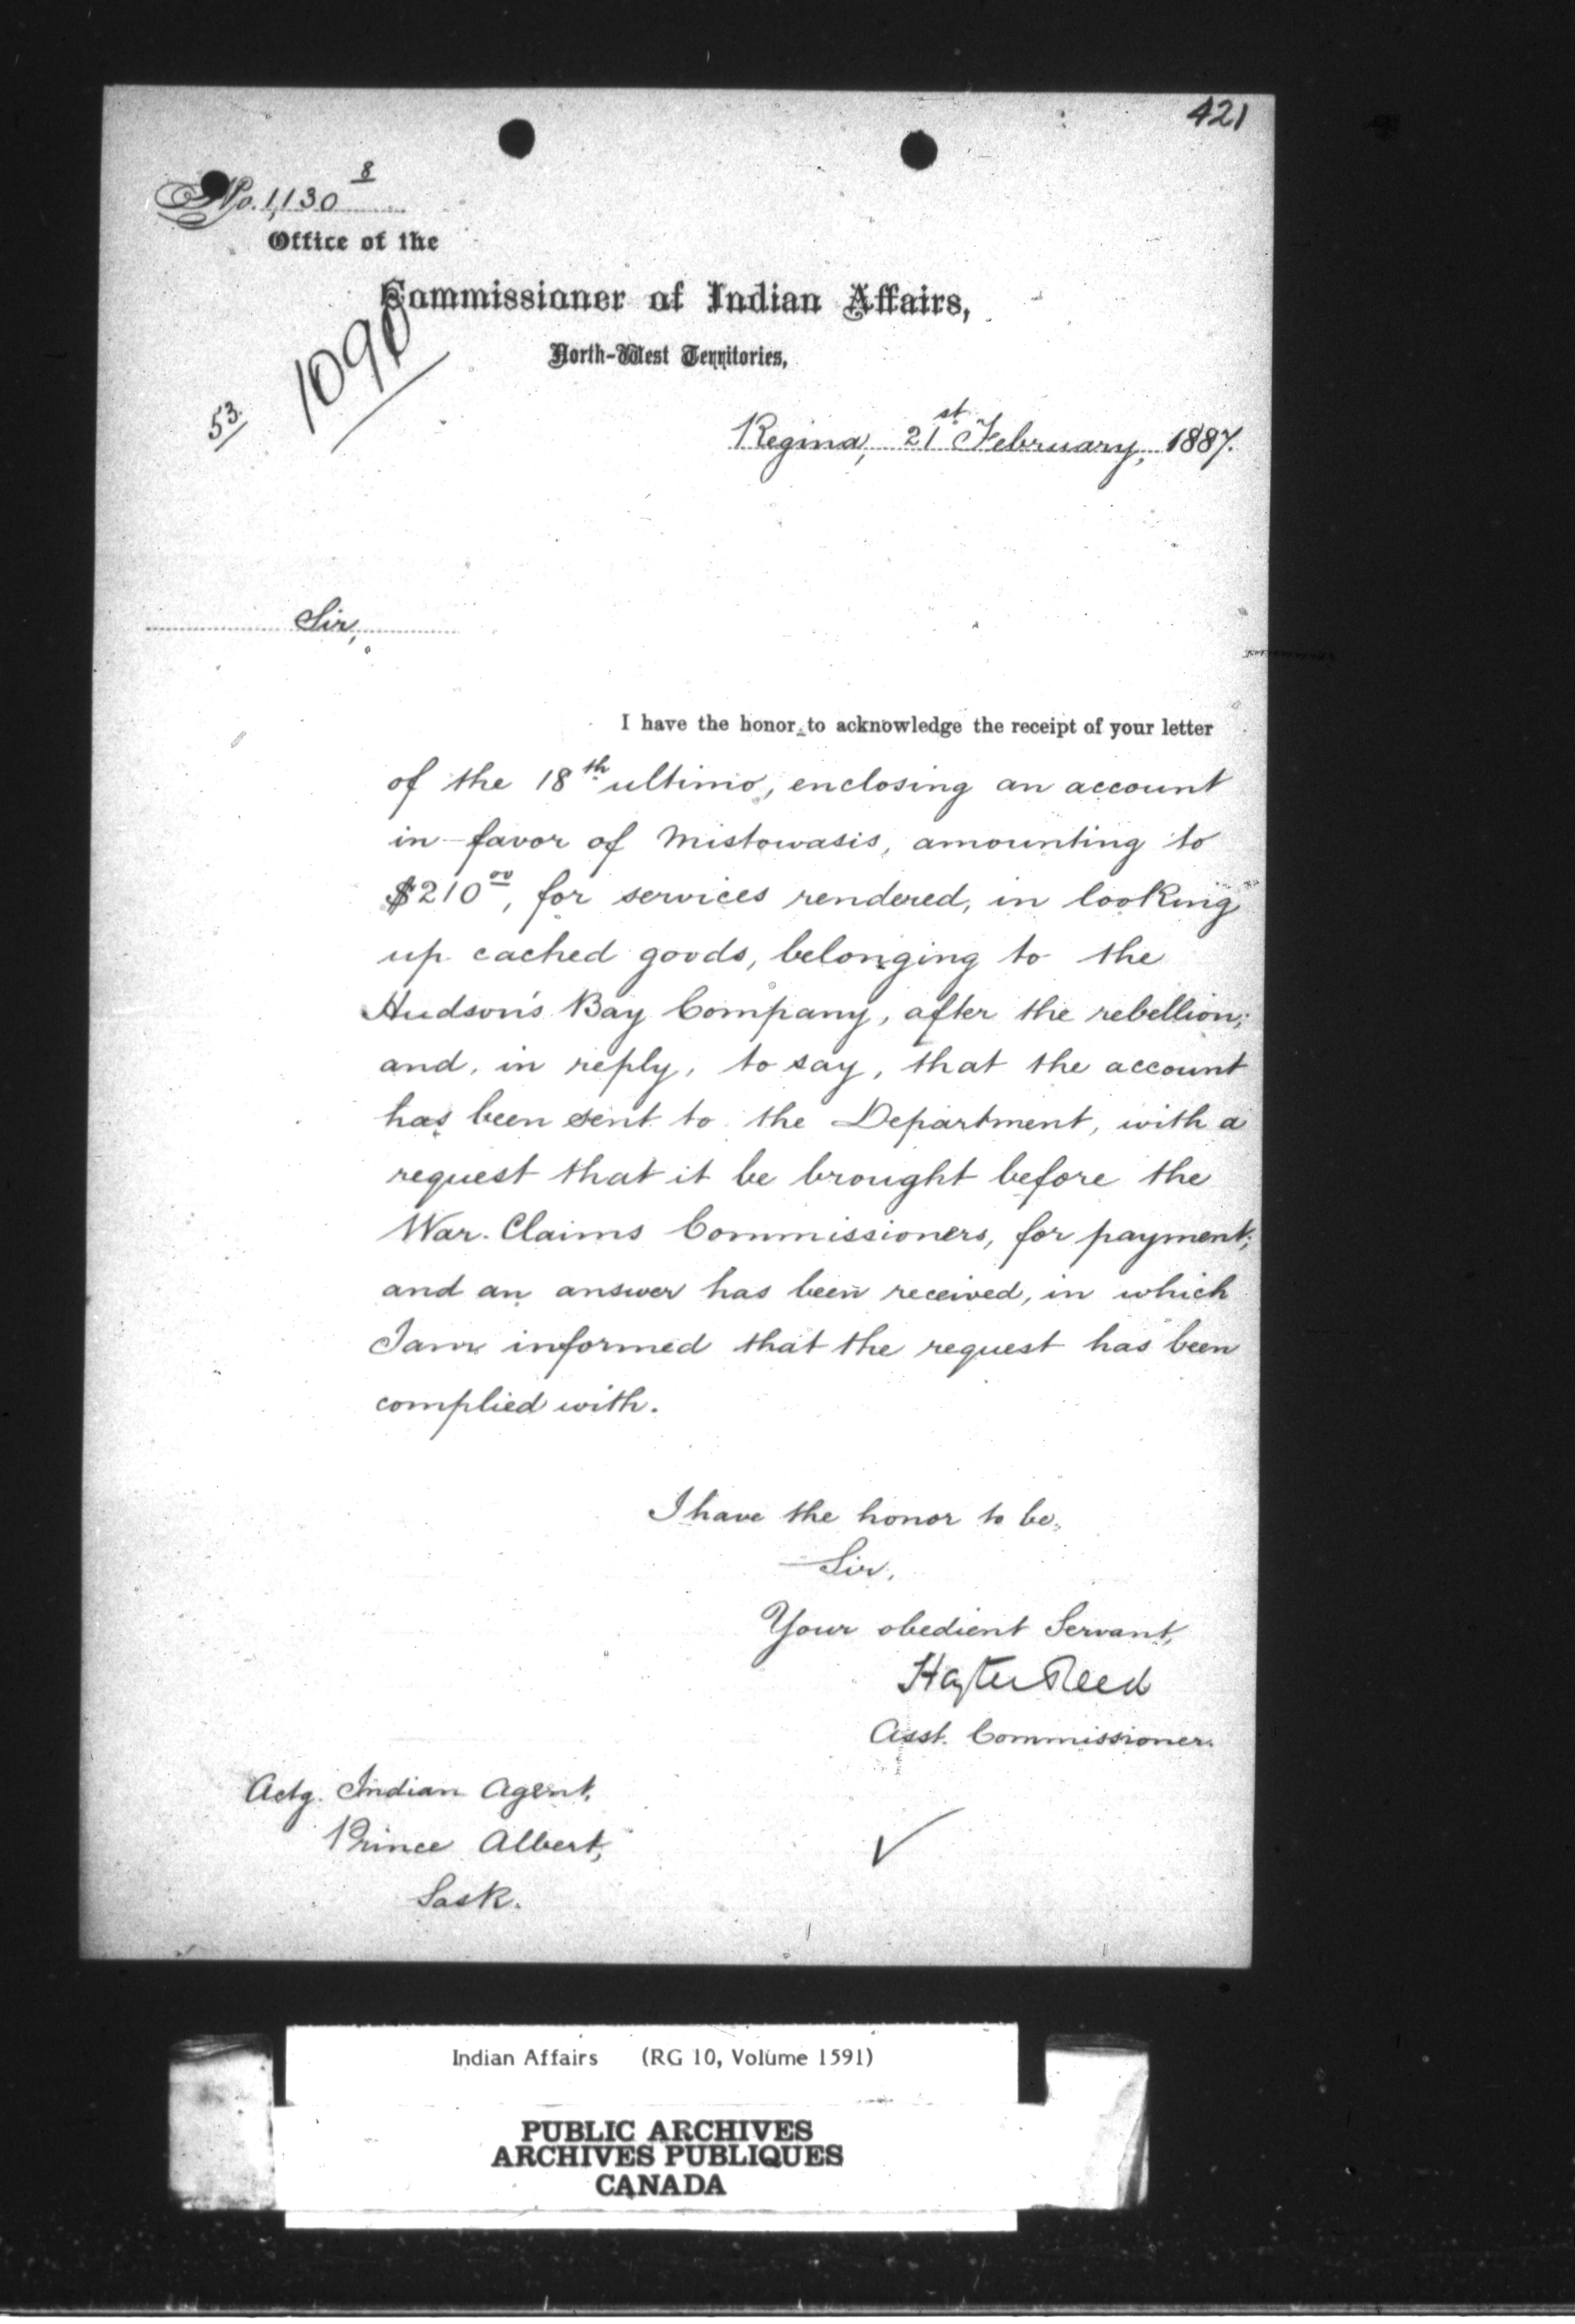 421
8
No. 1,130
Office of the
Commissioner of Indian Affairs,
North-West Territories,
1090
53
Regina, 21st February, 1887.
Sir,
I have the honor to acknowledge the receipt of your letter
of the 18th ultimo, enclosing an account
in favor of Mistowasis, amounting to
$210 00, for services rendered, in looking
up cached goods, belonging to the
Hudson's Bay Company, after the rebellion;
and, in reply, to say, that the account
has been sent to the Department, with a
request that it be brought before the
War Claims Commissioners, for payment;
and an answer has been received, in which
I am informed that the request has been
complied with.
I have the honor to be,
Sir,
Your obedient Servant,
Hayter Reed
Asst. Commissioner.
Actg. Indian Agent,
Prince Albert,
Sask.
Indian Affairs (RG 10, Volume 1591)
PUBLIC ARCHIVES
ARCHIVES PUBLIQUES
CANADA